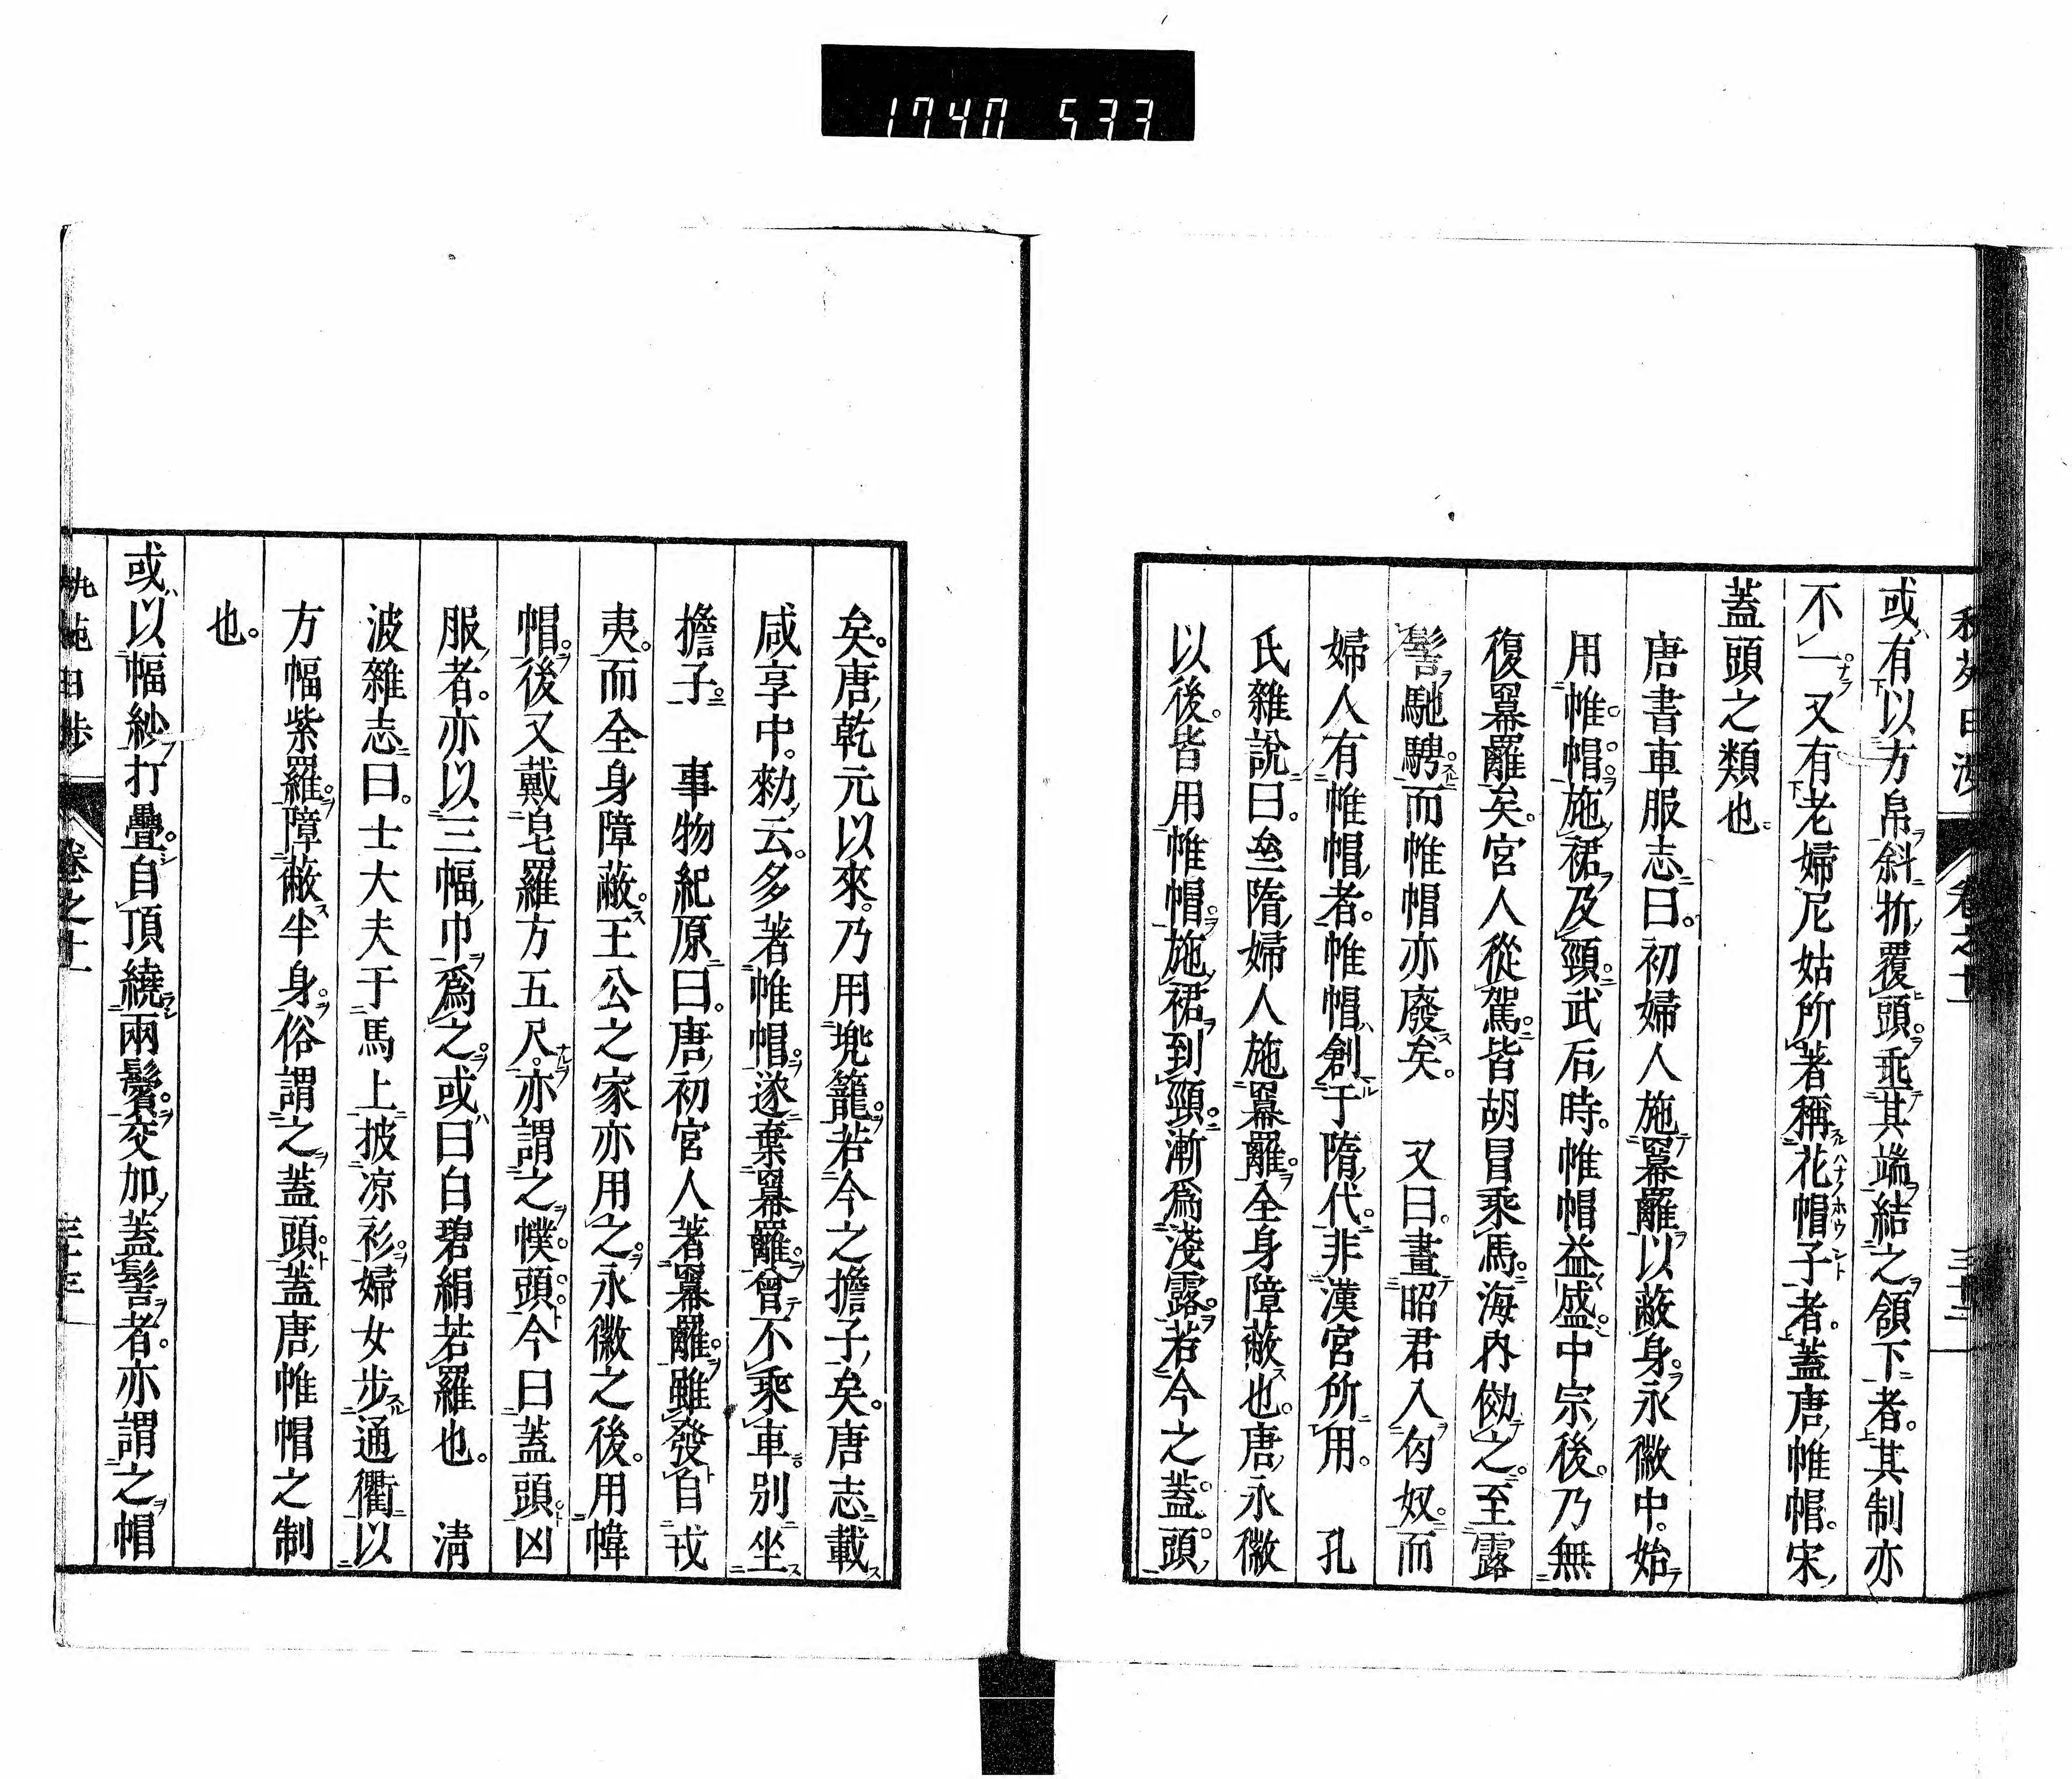 1740 533
或有以方帛斜折覆頭垂其端結之頷下者其制亦
不一又有老婦尼姑所著稱花帽子者蓋唐帷帽宋
蓋頭之類也
唐書車服志曰初婦人施羃䍦以蔽身永徽中始
用帷帽施裙及頸武后時帷帽益盛中宗後乃無
復羃䍦矣宮人從駕皆胡冒乘馬海內傚之至露
髻馳騁而帷帽亦廢矣 又曰畫昭君入匈奴而
婦人有帷帽者帷帽創于隋代非漢宮所用 孔
氏雜說曰㕘隋婦人施羃䍦全身障蔽也唐永徽
以後皆用帷帽施裙到頸漸爲淺露若今之蓋頭
矣唐乾元以來乃用兠籠若今之擔子矣唐志載
咸亨中勑云多著帷帽遂棄羃䍦曾不乘車別坐
擔子 事物紀原曰唐初宮人著羃䍦雖發自戎
夷而全身障蔽王公之家亦用之永徽之後用幃
帽後又戴皂羅方五尺亦謂之幞頭今曰蓋頭凶
服者亦以三幅巾爲之或曰白碧絹若羅也 淸
波雜志曰士大夫于馬上披凉衫婦女步通衢以
方幅紫羅障蔽半身俗謂之蓋頭蓋唐帷帽之制
也
或以幅紗打疊自頂繞兩鬢交加蓋髻者亦謂之帽
卷之十